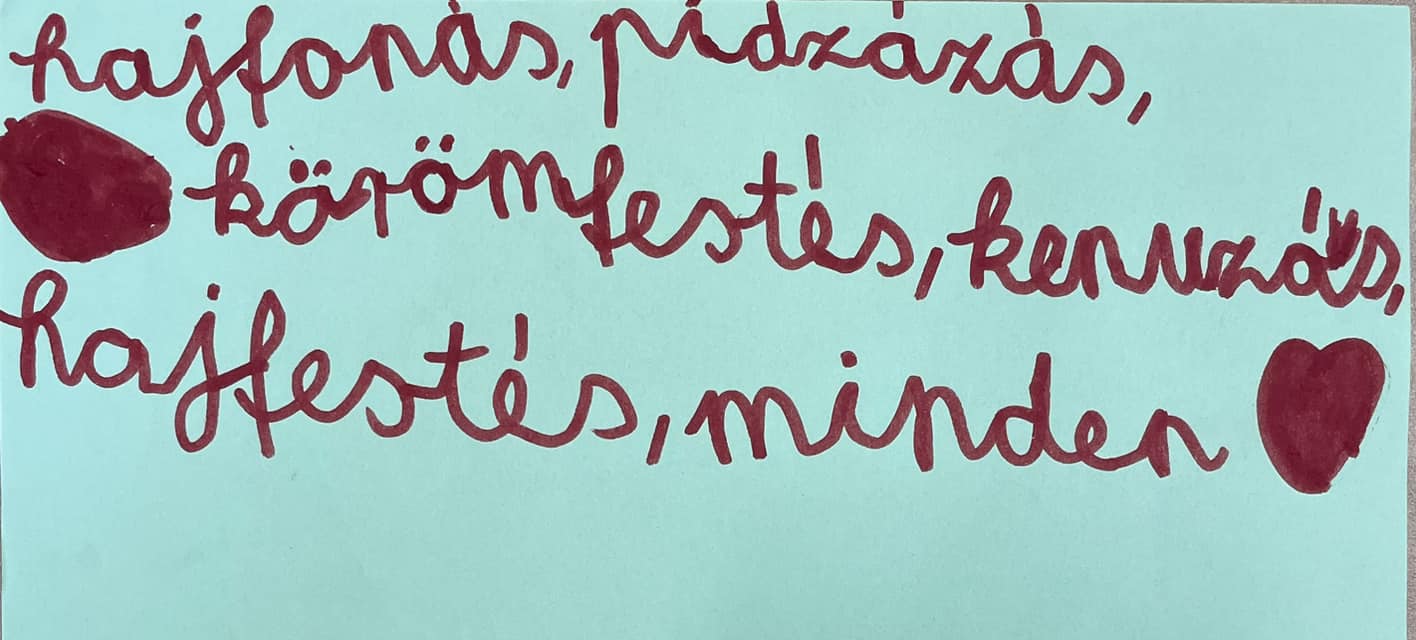 hajfonás, pidzázás,
körömfestés, kenuzás,
hajfestés, minden